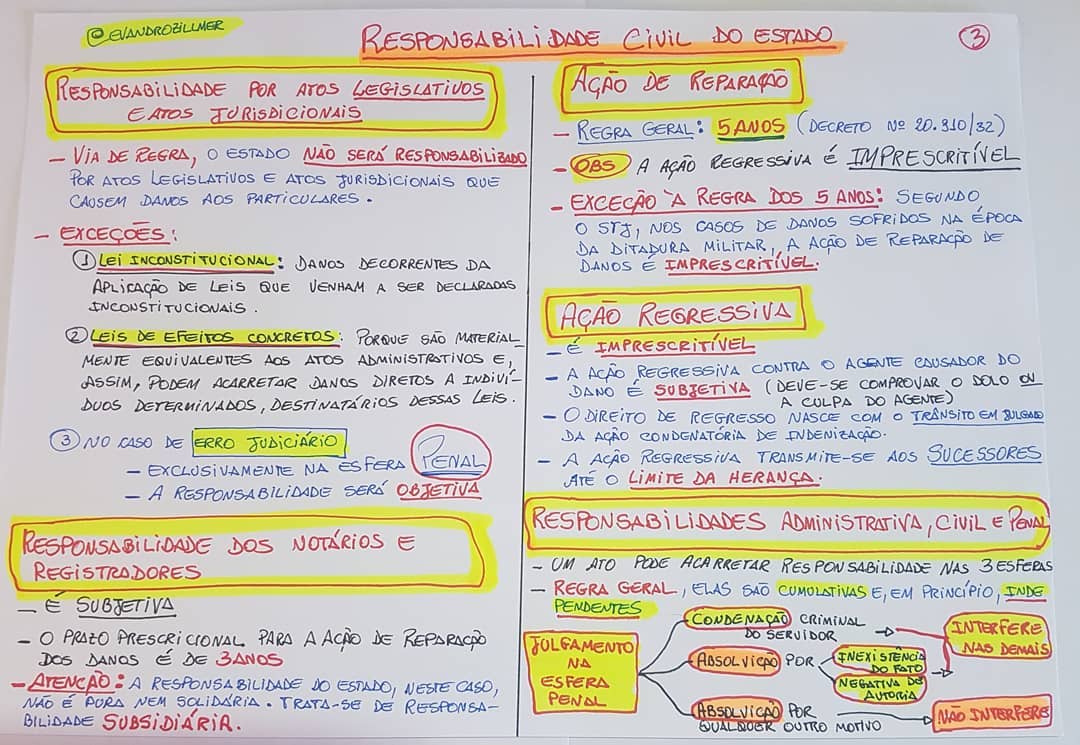 @EVANDROZILLMER
RESPONSABILIDADE CIVIL DO ESTADO
3
RESPONSABILIDADE POR ATOS LEGISLATIVOS
E ATOS JURISDICIONAIS
- VIA DE REGRA, O ESTADO NÃO SERÁ RESPONSABILIZADO
POR ATOS LEGISLATIVOS E ATOS JURISDICIONAIS QUE
CAUSEM DANOS AOS PARTICULARES.
- EXCEÇÕES:
1 LEI INCONSTITUCIONAL: DANOS DECORRENTES DA
APLICAÇÃO DE LEIS QUE VENHAM A SER DECLARADAS
INCONSTITUCIONAIS.
2 LEIS DE EFEITOS CONCRETOS: PORQUE SÃO MATERIAL
MENTE EQUIVALENTES AOS ATOS ADMINISTRATIVOS E,
ASSIM, PODEM ACARRETAR DANOS DIRETOS A INDIVÍ-
DUOS DETERMINADOS, DESTINATÁRIOS DESSAS LEIS.
3 NO CASO DE ERRO JUDICIÁRIO
- EXCLUSIVAMENTE NA ESFERA PENAL
- A RESPONSABILIDADE SERÁ OBJETIVA
RESPONSABILIDADE DOS NOTÁRIOS E
REGISTRADORES
- É SUBJETIVA
- O PRAZO PRESCRICIONAL PARA A AÇÃO DE REPARAÇÃO
DOS DANOS É DE 3 ANOS
- ATENÇÃO: A RESPONSABILIDADE DO ESTADO, NESTE CASO,
NÃO É PURA NEM SOLIDÁRIA. TRATA-SE DE RESPONSA-
BILIDADE SUBSIDIÁRIA.
AÇÃO DE REPARAÇÃO
- REGRA GERAL: 5 ANOS (DECRETO Nº 20.910/32)
- OBS A AÇÃO REGRESSIVA É IMPRESCRITÍVEL
- EXCEÇÃO À REGRA DOS 5 ANOS: SEGUNDO
O STJ, NOS CASOS DE DANOS SOFRIDOS NA ÉPOCA
DA DITADURA MILITAR, A AÇÃO DE REPARAÇÃO DE
DANOS É IMPRESCRITÍVEL.
AÇÃO REGRESSIVA
- É IMPRESCRITÍVEL
- A AÇÃO REGRESSIVA CONTRA O AGENTE CAUSADOR DO
DANO É SUBJETIVA (DEVE-SE COMPROVAR O DOLO OU
A CULPA DO AGENTE)
- O DIREITO DE REGRESSO NASCE COM O TRÂNSITO EM JULGADO
DA AÇÃO CONDENATÓRIA DE INDENIZAÇÃO.
- A AÇÃO REGRESSIVA TRANSMITE-SE AOS SUCESSORES
ATÉ O LIMITE DA HERANÇA.
RESPONSABILIDADES ADMINISTRATIVA, CIVIL E PENAL
- UM ATO PODE ACARRETAR RESPONSABILIDADE NAS 3 ESFERAS
- REGRA GERAL, ELAS SÃO CUMULATIVAS E, EM PRINCÍPIO, INDE
PENDENTES
JULGAMENTO
NA
ESFERA
PENAL
CONDENAÇÃO CRIMINAL
DO SERVIDOR
ABSOLVIÇÃO POR
INEXISTÊNCIA
DO FATO
NEGATIVA DE
AUTORIA
INTERFERE
NAS DEMAIS
ABSOLVIÇÃO POR
QUALQUER OUTRO MOTIVO
NÃO INTERFERE